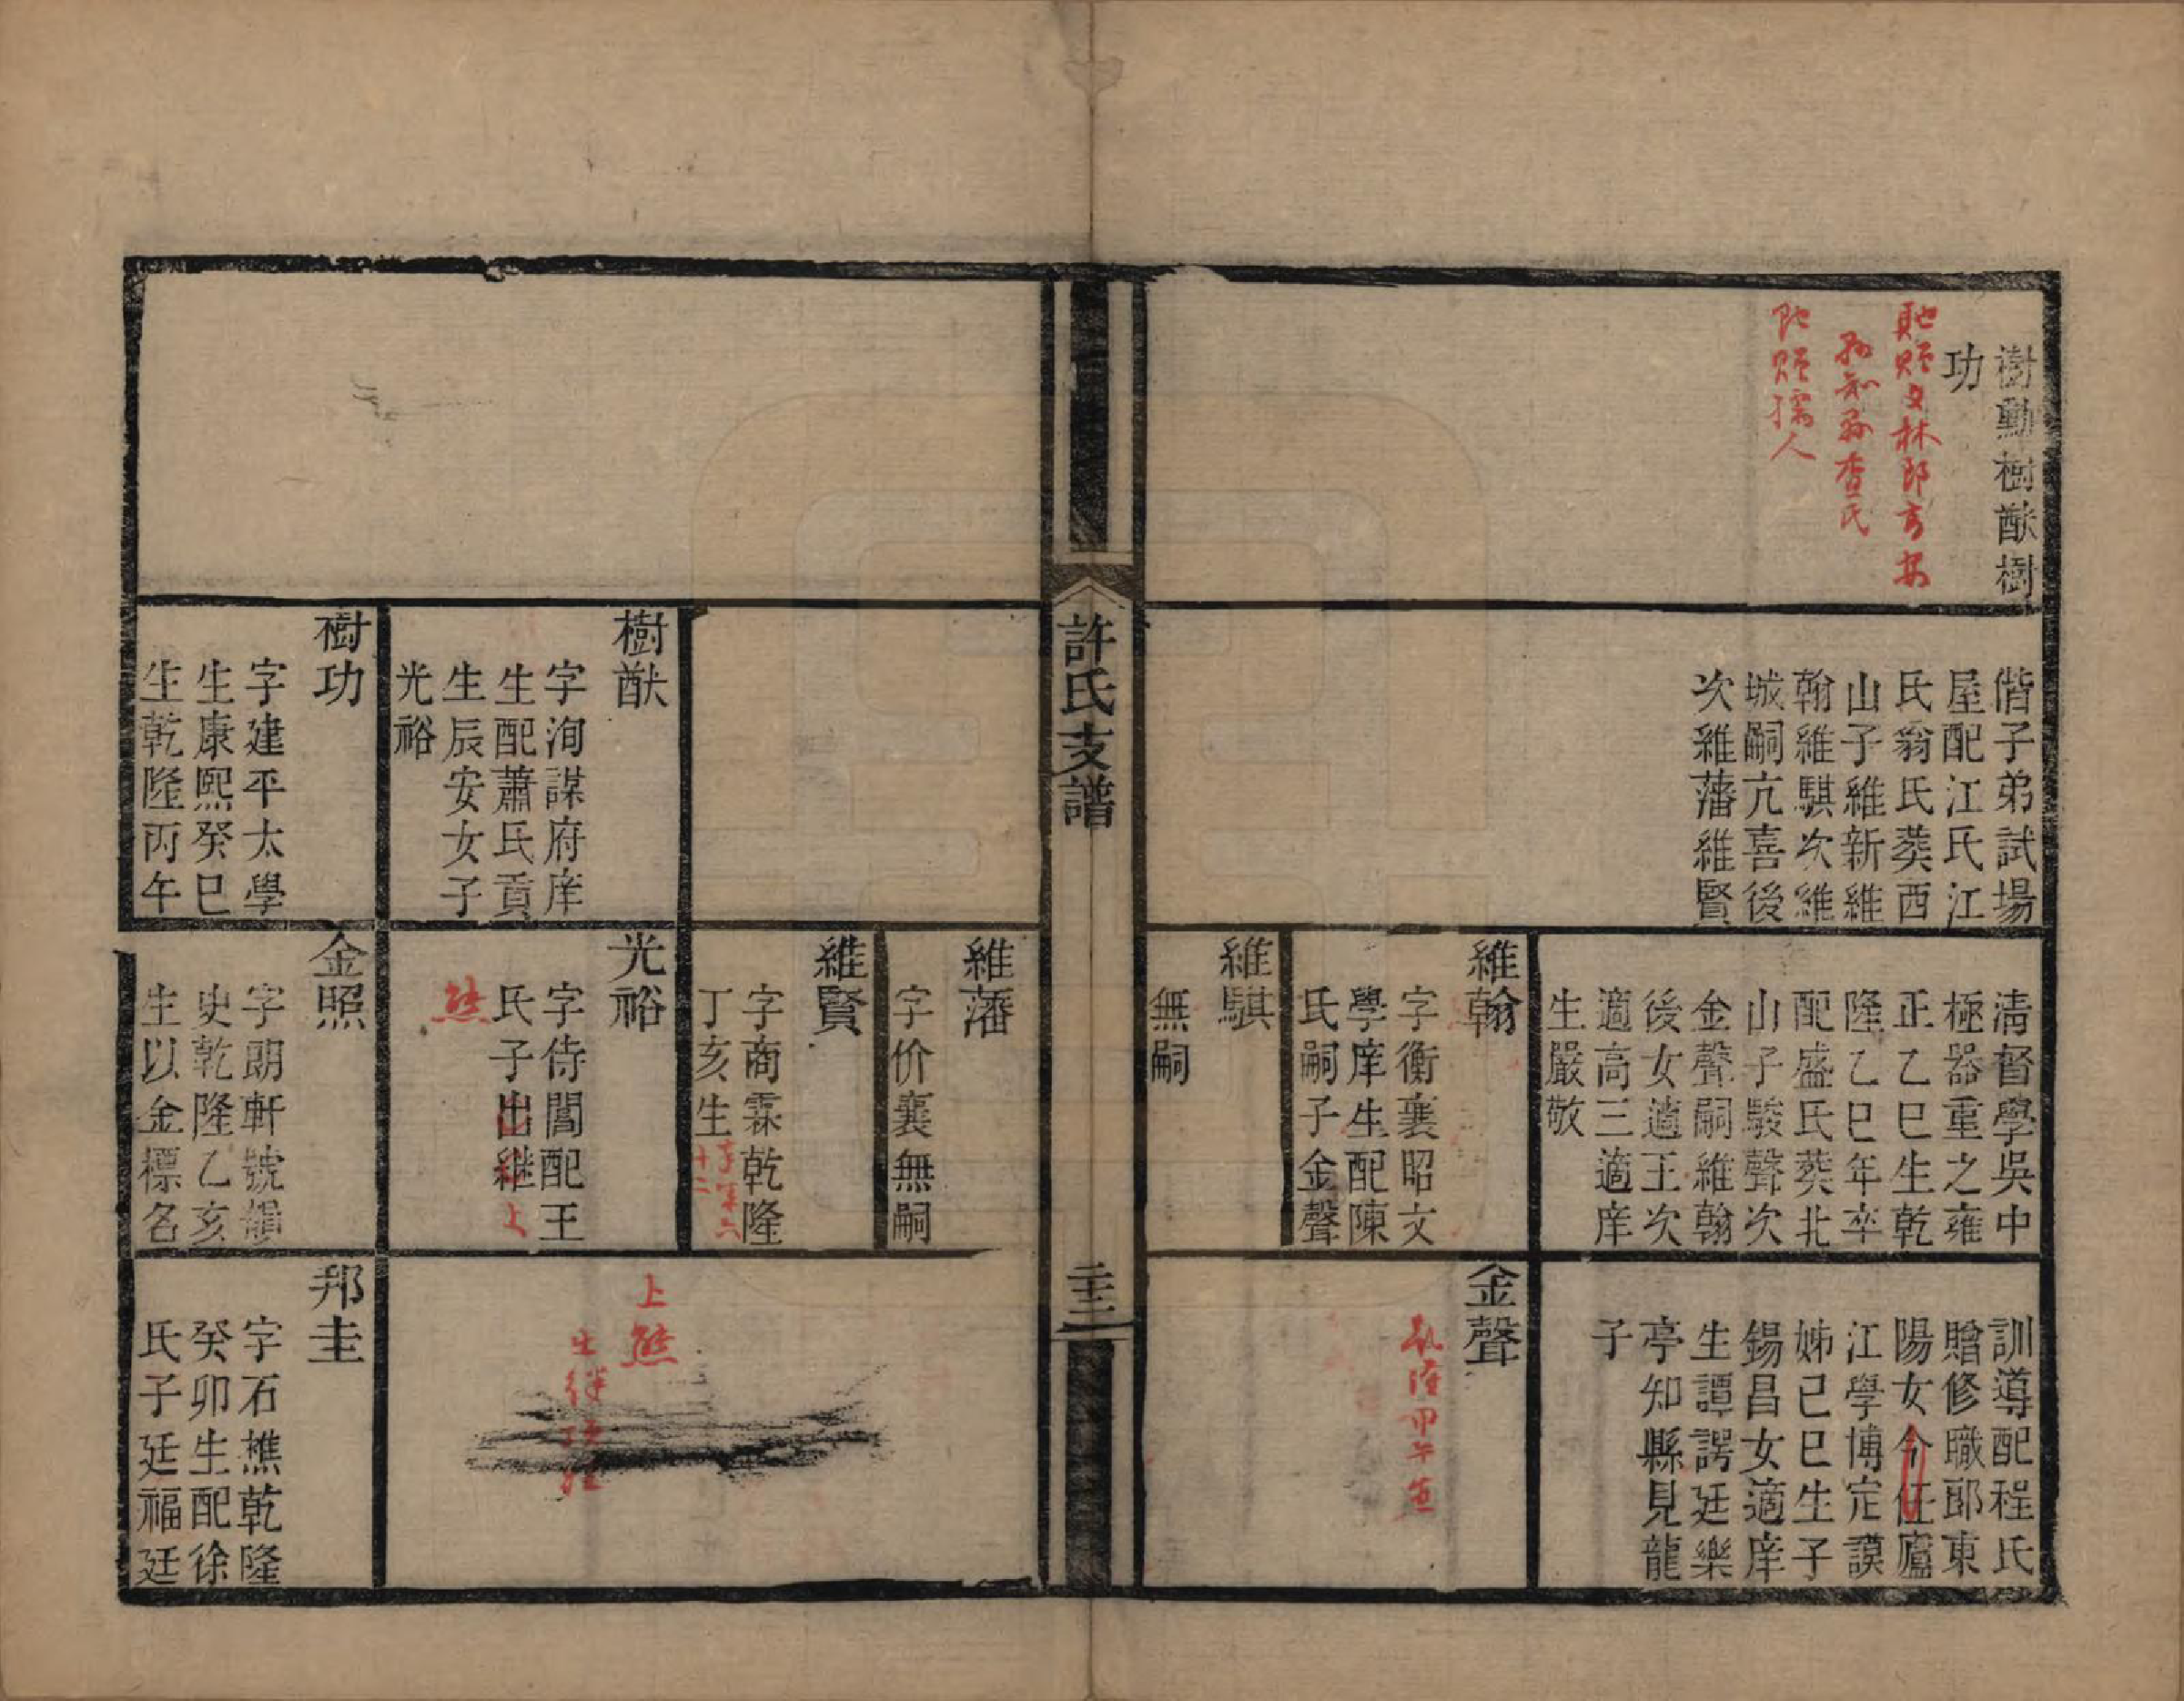 樹勳樹猷樹
功
貤贈文林郎高安
縣知縣查氏
貤贈孺人
偕子弟試場
屋配江氏江
氏翁氏葬西
山子維新維
翰維騏次維
城嗣亢喜後
次維藩維賢
清督學吳中
極器重之雍
正乙巳生乾
隆乙巳年卒
配盛氏葬北
山子駿聲次
金聲嗣維翰
後女適王次
適高三適庠
生嚴敬
訓導配程氏
贈修職郎東
陽女今任廬
江學博定謨
姊己巳生子
錫昌女適庠
生譚諤廷樂
亭知縣見龍
子
維翰
字衡襄昭文
學庠生配陳
氏嗣子金聲
金聲
乾隆甲午
維騏
無嗣
許氏支譜
二十三
維藩
字价襄無嗣
維賢
字商霖乾隆
丁亥生
樹猷
字洵謀府庠
生配蕭氏貢
生辰安女子
光裕
光裕
字侍闇配王
氏子出繼
熊
上熊
樹功
字建平太學
生康熙癸巳
生乾隆丙午
金照
字朗軒號韻
史乾隆乙亥
生以金標名
邦圭
字石樵乾隆
癸卯生配徐
氏子廷福廷